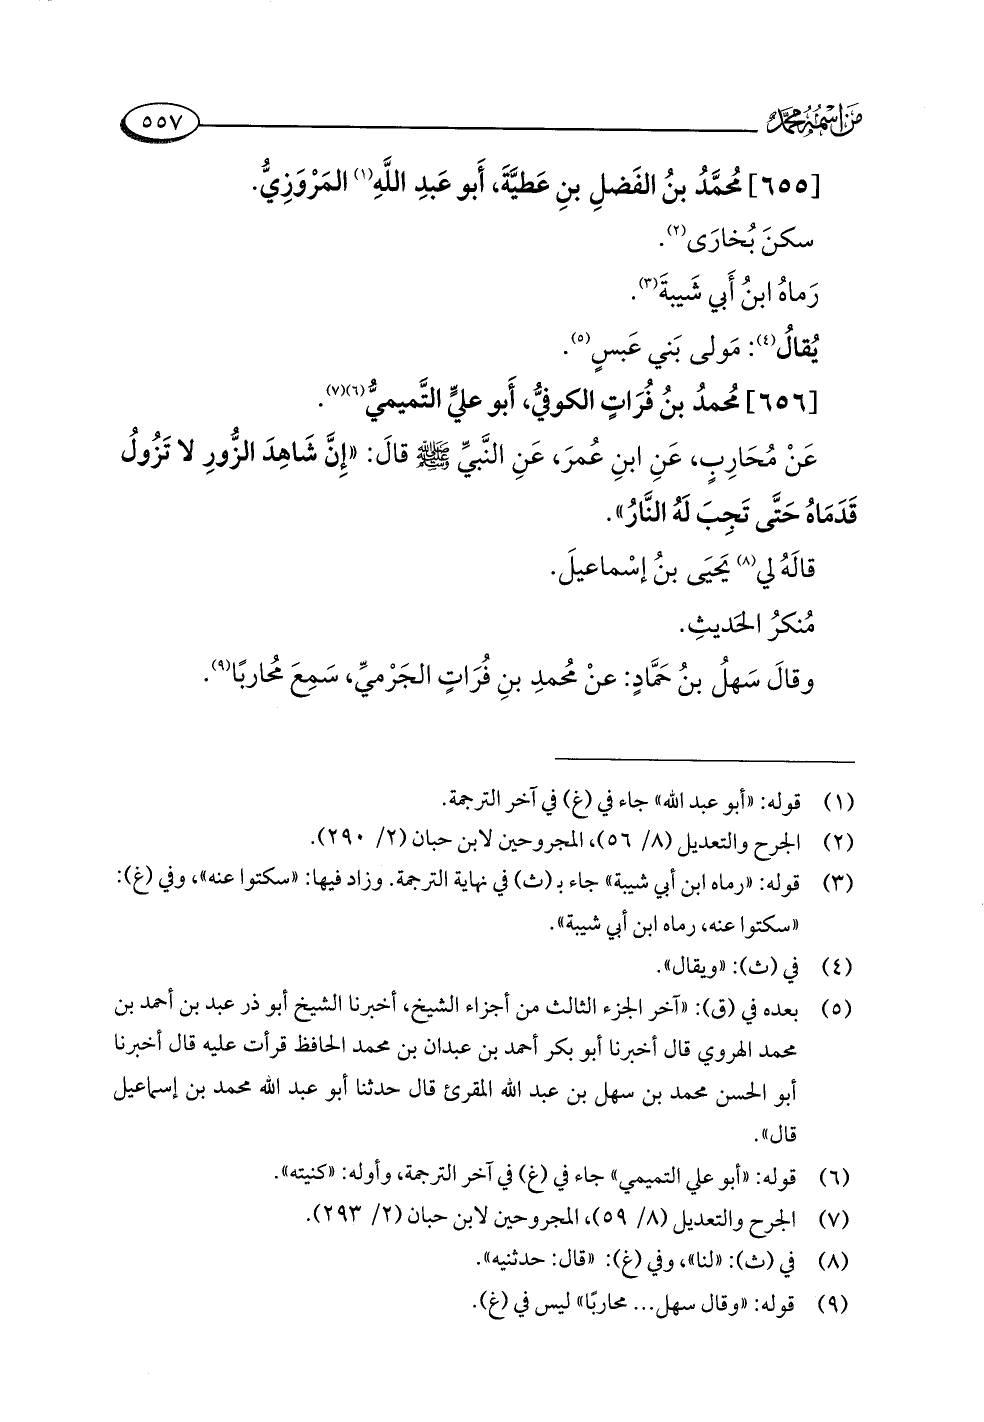 من اسمه محمد
٥٥٧
[٦٥٥] مُحمَّدُ بنُ الفَضلِ بنِ عَطيَّةَ، أَبو عَبدِ اللَّهِ(١) المَرْوَزِيُّ.
سكنَ بُخارَى(٢).
رَماهُ ابنُ أَبي شَيبةَ(٣).
يُقالُ(٤): مَولى بَني عَبسٍ(٥).
[٦٥٦] مُحمدُ بنُ فُرَاتٍ الكوفيُّ، أَبو عليٍّ التَّميميُّ(٦)(٧).
عَنْ مُحَارِبٍ، عَنِ ابنِ عُمرَ، عَنِ النَّبيِّ ﷺ قالَ: «إِنَّ شَاهِدَ الزُّورِ لا تَزُولُ
قَدَمَاهُ حَتَّى تَجِبَ لَهُ النَّارُ».
قالَهُ لي(٨) يَحيَى بنُ إسْماعيلَ.
مُنكرُ الحَديثِ.
وقالَ سَهلُ بنُ حَمَّادٍ: عنْ مُحمدِ بنِ فُرَاتٍ الجَرْميِّ، سَمِعَ مُحاربًا(٩).
(١) قوله: «أبو عبد الله» جاء في (غ) في آخر الترجمة.
(٢) الجرح والتعديل (٨/ ٥٦)، المجروحين لابن حبان (٢/ ٢٩٠).
(٣) قوله: «رماه ابن أبي شيبة» جاء بـ (ث) في نهاية الترجمة. وزاد فيها: «سكتوا عنه»، وفي (غ):
«سكتوا عنه، رماه ابن أبي شيبة».
(٤) في (ث): «ويقال».
(٥) بعده في (ق): «آخر الجزء الثالث من أجزاء الشيخ، أخبرنا الشيخ أبو ذر عبد بن أحمد بن
محمد الهروي قال أخبرنا أبو بكر أحمد بن عبدان بن محمد الحافظ قرأت عليه قال أخبرنا
أبو الحسن محمد بن سهل بن عبد الله المقرئ قال حدثنا أبو عبد الله محمد بن إسماعيل
قال».
(٦) قوله: «أبو علي التميمي» جاء في (غ) في آخر الترجمة، وأوله: «كنيته».
(٧) الجرح والتعديل (٨/ ٥٩)، المجروحين لابن حبان (٢/ ٢٩٣).
(٨) في (ث): «لنا»، وفي (غ): «قال: حدثنيه».
(٩) قوله: «وقال سهل... محاربًا» ليس في (غ).